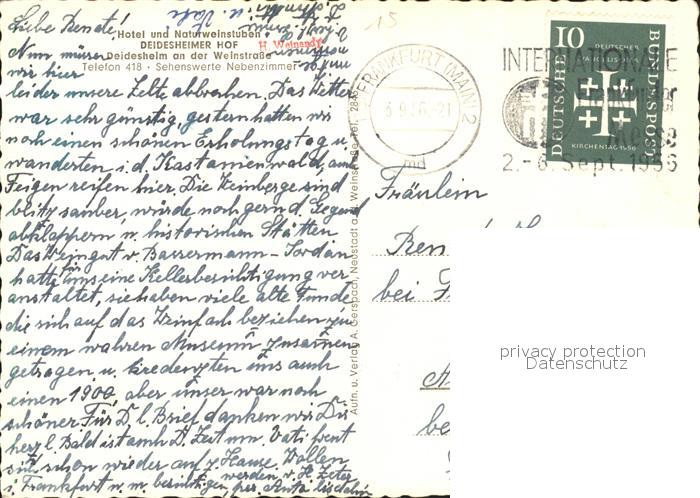 Liebe Renate!
"Hotel und Naturweinstuben"
DEIDESHEIMER HOF
H. Weinandy
Deidesheim an der Weinstraße
Telefon 418 · Sehenswerte Nebenzimmer
Nun müssen
wir hier
leider unsere Zelte abbrechen. Das Wetter
war sehr günstig, gestern hatten wir
noch einen schönen Erholungstag u.
wanderten i. d. Kastanienwald, auch
Feigen reifen hier. Die Weinberge sind
blitz sauber, würde noch gern d. Gegend
abklappern u. historischen Stätten
Das Weingut v. Bassermann-Jordan
hatte uns eine Kellerbesichtigung ver
anstaltet, sie haben viele alte Funde
die sich auf das Weinfach beziehen zu
einem wahren Museum zusammen
getragen u. kredenzten uns auch
einen 1900, aber unser war noch
schöner. Für D. l. Brief danken wir Dir
herzl. Bald ist auch D. Zeit um. Vati freut
sich schon wieder auf z. Hause. Wollen
i. Frankfurt
Aufn. u. Verlag A. Gerspach, Neustadt a. d. Weinstraße, Tel. 284
15
FRANKFURT (MAIN) 2
md
INTERNATIONALE
Frankfurter
Messe
2.-6. Sept. 1956
10
DEUTSCHE BUNDESPOST
DEUTSCHER
EVANGELISCHER
KIRCHENTAG 1956
Fräulein
Ren
bei F
privacy protection
Datenschutz